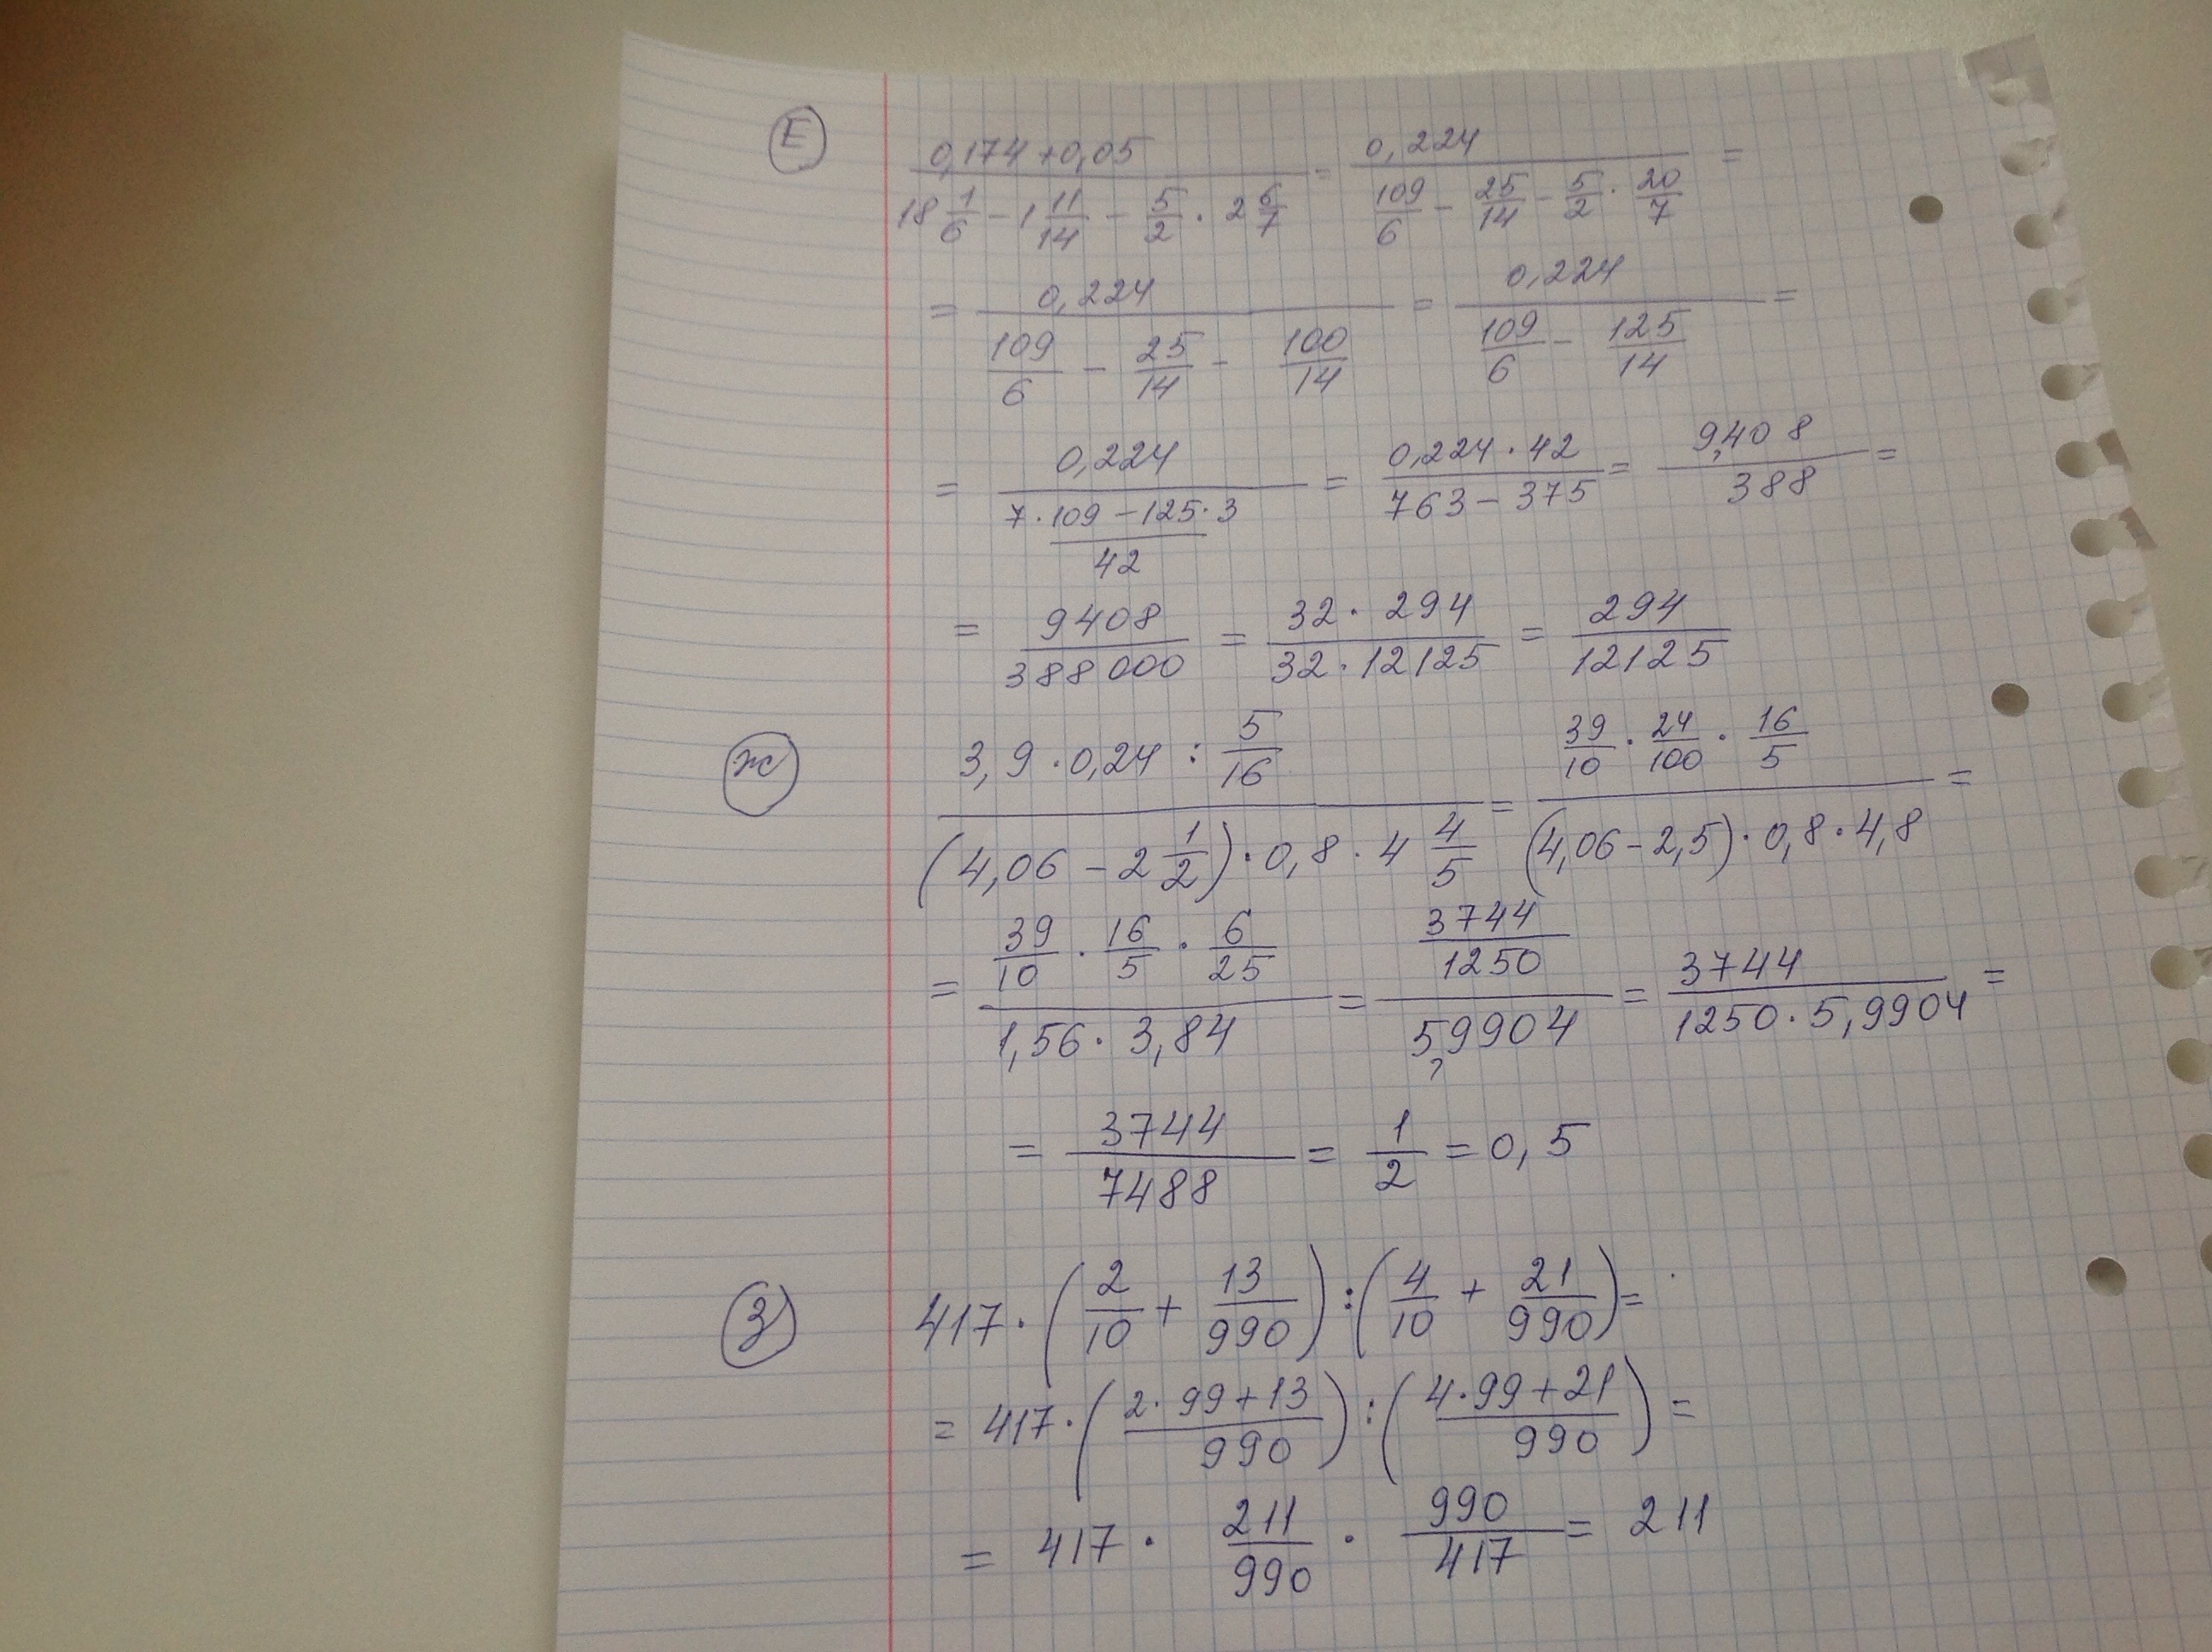 Е
(0,174+0,05)/(18 1/6 - 1 11/14 - 5/2 · 2 6/7) = 0,224/(109/6 - 25/14 - 5/2 · 20/7) =
= 0,224/(109/6 - 25/14 - 100/14) = 0,224/(109/6 - 125/14) =
= 0,224/((7·109-125·3)/42) = (0,224·42)/(763-375) = 9,408/388 =
= 9408/388000 = (32·294)/(32·12125) = 294/12125
ж
(3,9·0,24 : 5/16)/((4,06 - 2 1/2)·0,8·4 4/5) = (39/10 · 24/100 · 16/5)/((4,06-2,5)·0,8·4,8) =
= (39/10 · 16/5 · 6/25)/(1,56·3,84) = (3744/1250)/5,9904 = 3744/(1250·5,9904) =
= 3744/7488 = 1/2 = 0,5
З
417·(2/10 + 13/990):(4/10 + 21/990)=
= 417·((2·99+13)/990):((4·99+21)/990) =
= 417 · 211/990 · 990/417 = 211